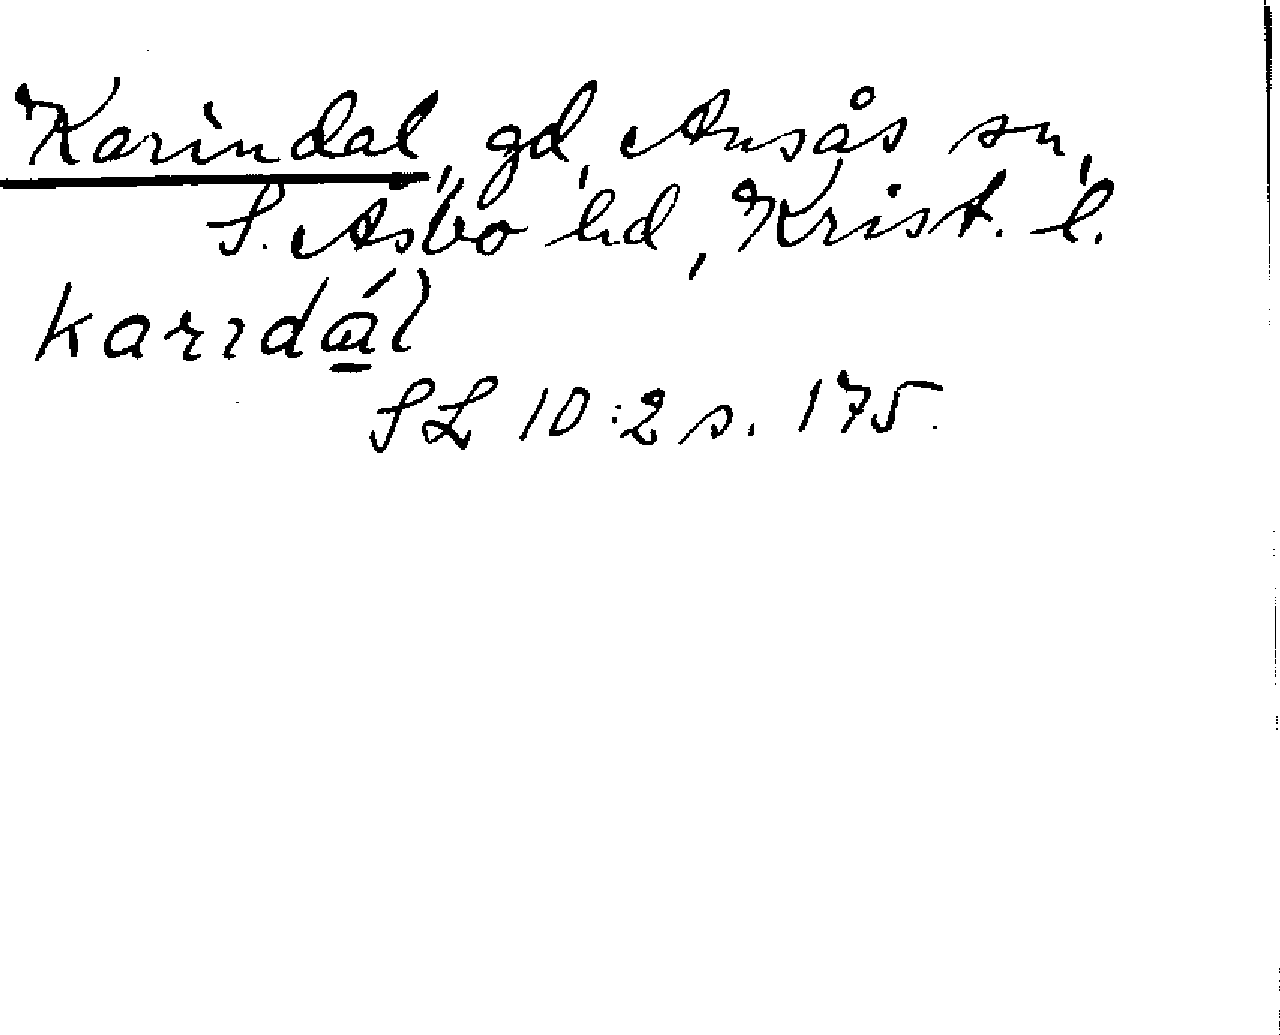 Karindal, gd, Ausås sn,
S. Åsbo hd, Krist. l.
karɪdál
SL 10:2 s. 175.